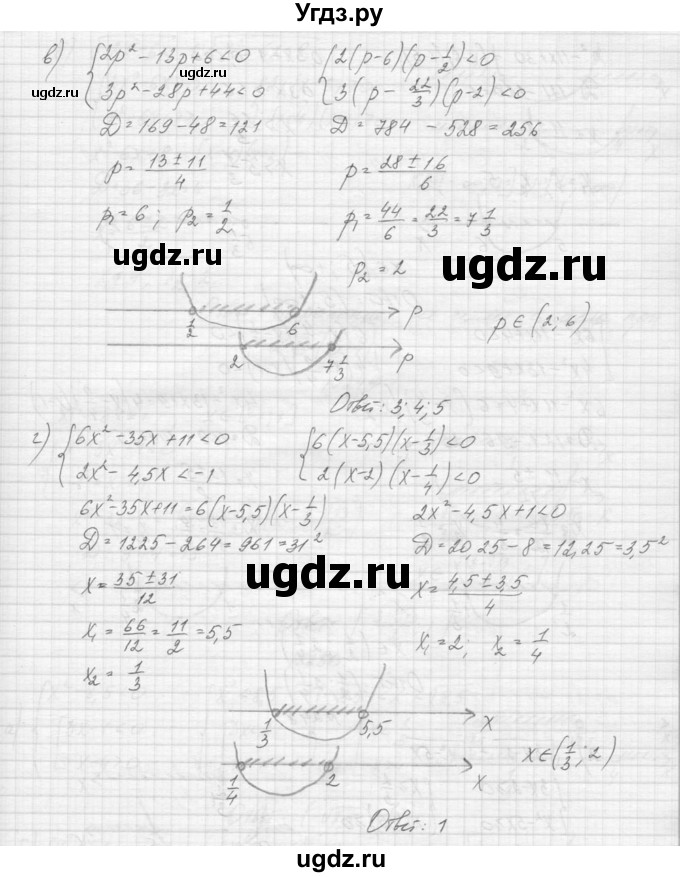 Угдз.ру
в) { 2p² - 13p + 6 < 0    { 2(p - 6)(p - 1/2) < 0
{ 3p² - 28p + 44 < 0    { 3(p - 22/3)(p - 2) < 0
ugdz.ru
ugdz.ru
D = 169 - 48 = 121    D = 784 - 528 = 256
p = (13 ± 11)/4    p = (28 ± 16)/6
p₁ = 6; p₂ = 1/2    p₁ = 44/6 = 22/3 = 7 1/3
ugdz.ru
ugdz.ru
p₂ = 2
1/2    6    p
2    7 1/3    p
p ∈ (2; 6)
Ответ: 3; 4; 5
г) { 6x² - 35x + 11 < 0    { 6(x - 5,5)(x - 1/3) < 0
{ 2x² - 4,5x < -1    { 2(x - 2)(x - 1/4) < 0
6x² - 35x + 11 = 6(x - 5,5)(x - 1/3)    2x² - 4,5x + 1 < 0
D = 1225 - 264 = 961 = 31²    D = 20,25 - 8 = 12,25 = 3,5²
ugdz.ru
ugdz.ru
x = (35 ± 31)/12    x = (4,5 ± 3,5)/4
x₁ = 66/12 = 11/2 = 5,5    x₁ = 2; x₂ = 1/4
x₂ = 1/3
1/3    5,5    x
1/4    2    x
x ∈ (1/3; 2)
ugdz.ru
ugdz.ru
Ответ: 1
ugdz.ru